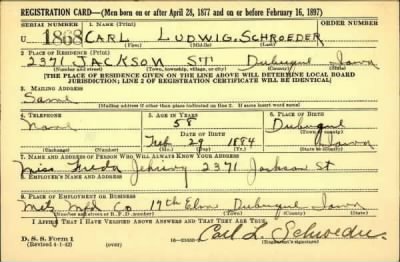 REGISTRATION CARD—(Men born on or after April 28, 1877 and on or before February 16, 1897)
SERIAL NUMBER 1. NAME (Print) ORDER NUMBER
U 1868 CARL LUDWIG. SCHROEDER
(First) (Middle) (Last)
2. PLACE OF RESIDENCE (Print)
2371 JACKSON ST Dubuque Iowa
(Number and street) (Town, township, village, or city) (County) (State)
[THE PLACE OF RESIDENCE GIVEN ON THE LINE ABOVE WILL DETERMINE LOCAL BOARD
JURISDICTION; LINE 2 OF REGISTRATION CERTIFICATE WILL BE IDENTICAL]
3. MAILING ADDRESS
Same
[Mailing address if other than place indicated on line 2. If same insert word same]
4. TELEPHONE 5. AGE IN YEARS 6. PLACE OF BIRTH
None 58 Dubuque
DATE OF BIRTH (Town or county)
Feb 29 1884 Iowa
(Exchange) (Number) (Mo.) (Day) (Yr.) (State or country)
7. NAME AND ADDRESS OF PERSON WHO WILL ALWAYS KNOW YOUR ADDRESS
Miss Freda 2371 Jackson St
8. EMPLOYER'S NAME AND ADDRESS
9. PLACE OF EMPLOYMENT OR BUSINESS
Metz Co 19th Elm Dubuque Iowa
(Number and street or R. F. D. number) (Town) (County) (State)
I AFFIRM THAT I HAVE VERIFIED ABOVE ANSWERS AND THAT THEY ARE TRUE.
D. S. S. Form 1
(Revised 4-1-42) (over) Carl L. Schroeder
(Registrant's signature)